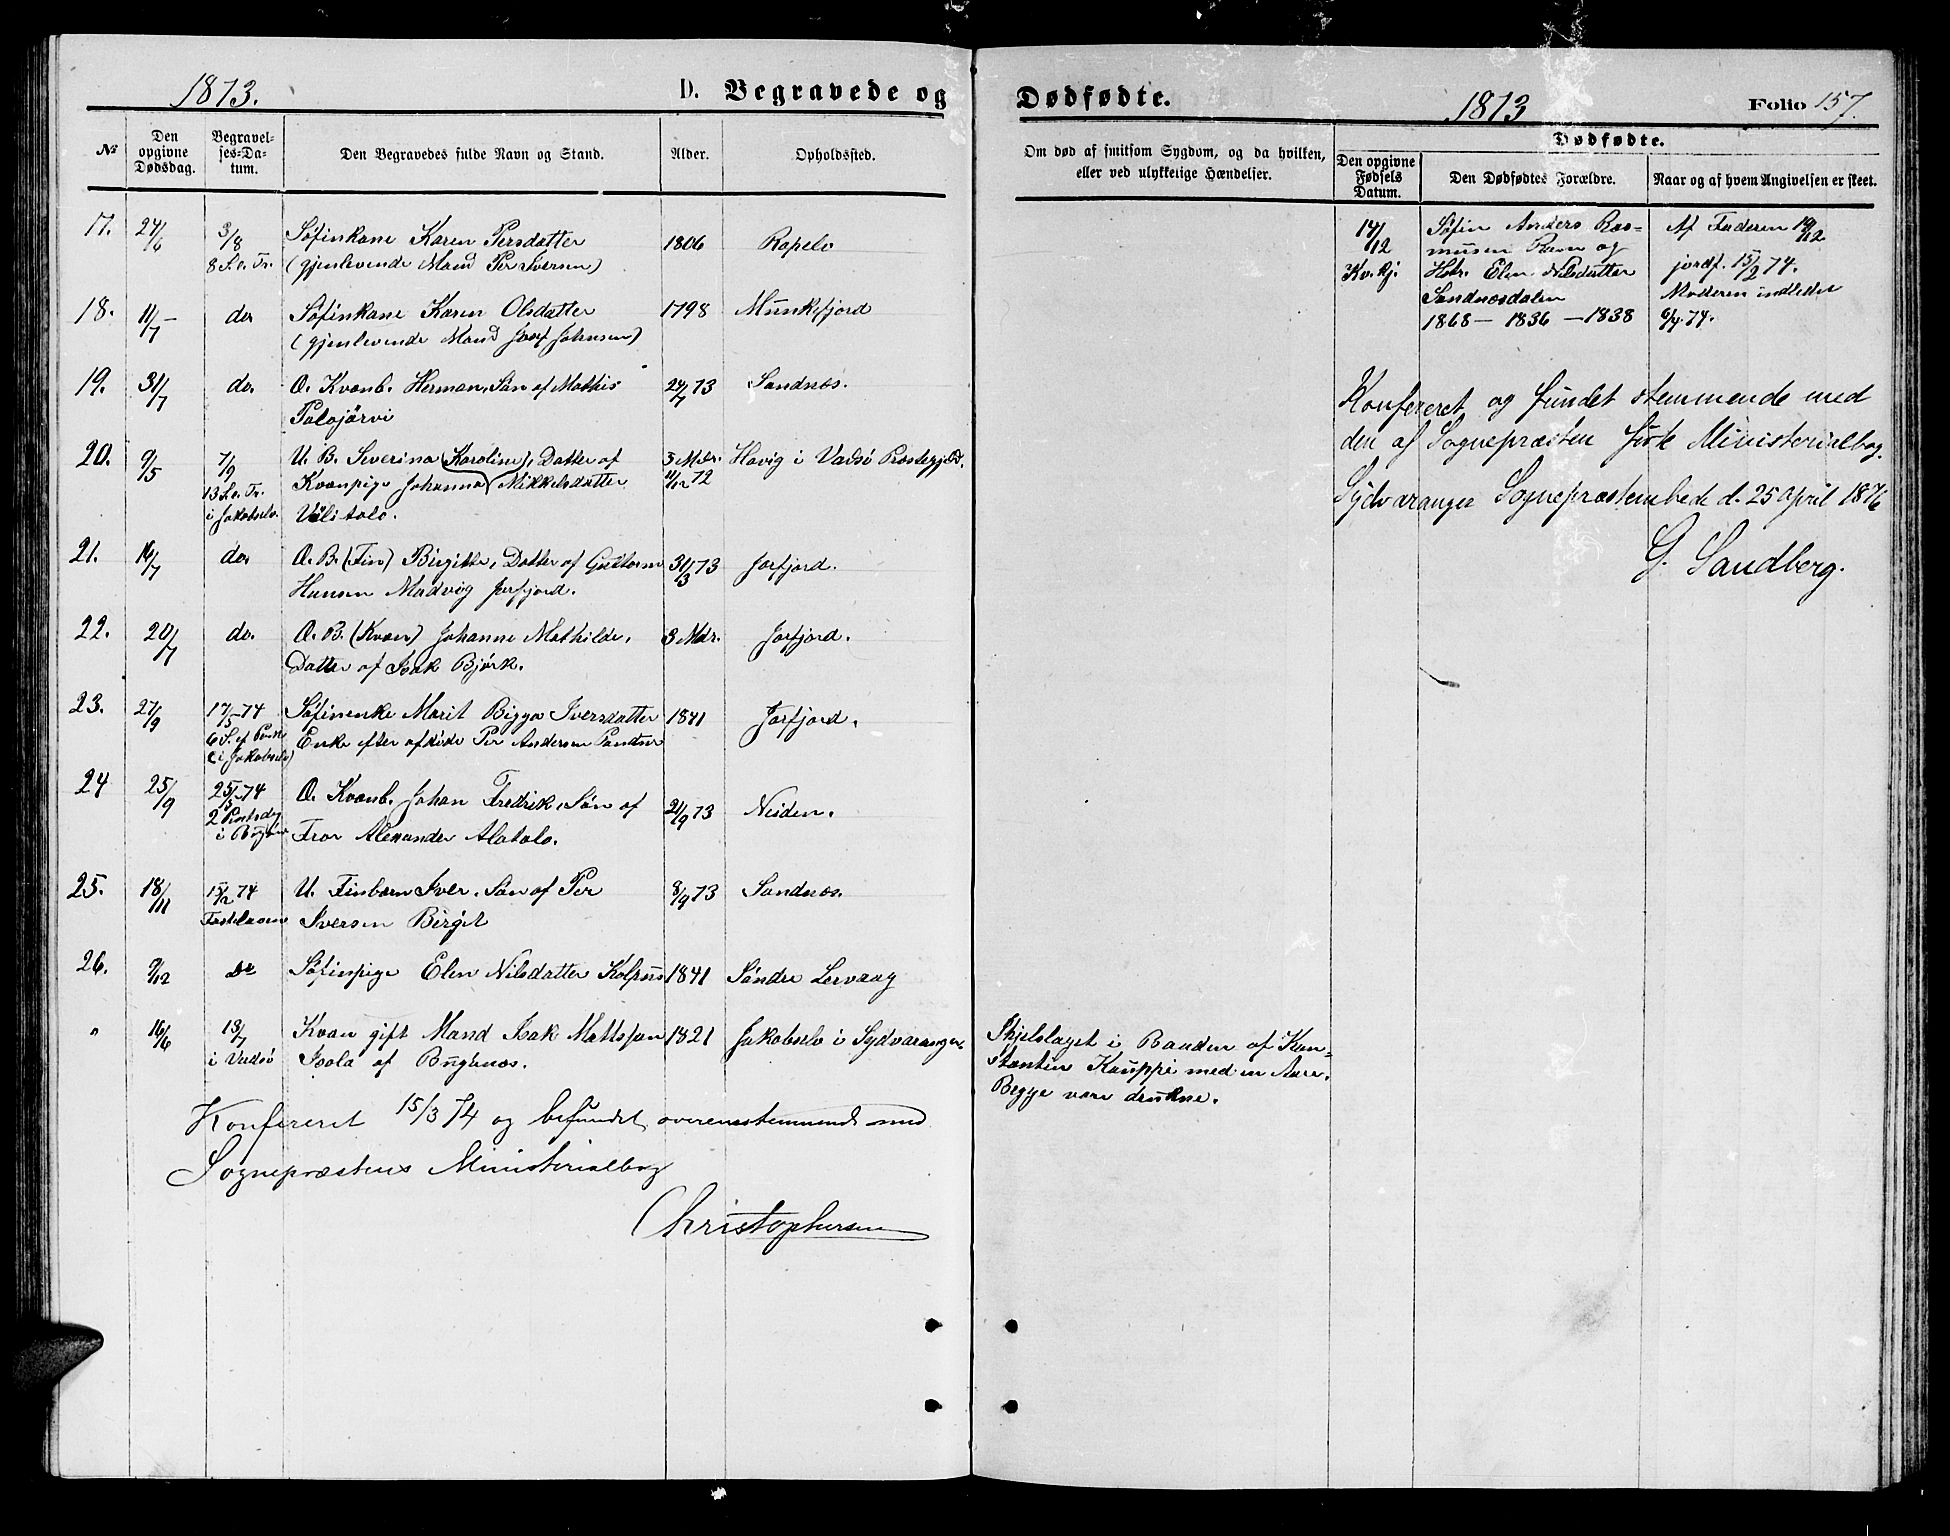 1873.
D. Begravede og
№
Den opgivne Dødsdag.
Begravelses-Datum.
Den Begravedes fulde Navn og Stand.
Alder.
Opholdssted.
17. 27/6 3/8 Søfinkone Karen Persdatter 1806 Ropelv
8 S. e. Tr. (gjenlevende Mand Per Iversen)
18. 11/7 do Søfinkone Karen Olsdatter 1798 Munkefjord
(gjenlevende Mand Josef Johnsen)
19. 31/7 do. Æ. Kvænb. Herman, Søn af Mathis 24/7 73 Sandnæs.
Palojärvi
20. 9/5 7/9 U. B. Severina (Karoline), Datter af 3 Mdr. Havig i Vadsö Præstegjæld.
13 S. e. Tr. Kvænpige Johanna Mikkelsdatter 11/12 72
i Jakobselv. Ulitalo.
21. 16/7 do. Æ. B. (Fin) Birgitte, Datter af Guttorm 31/3 73 Jarfjord.
Hansen Madvig Jarfjord.
22. 20/7 do. Æ. B. (Kvæn) Johanne Mathilde, 3 Mdr. Jarfjord.
Datter af Isak Björk.
23. 27/9 17/5 74 Søfinenke Marit Bigga Iversdatter 1841 Jarfjord.
6 S. ef. Paaske Enke efter afdöde Per Andersen
i Jakobselv
24 25/9 25/5 74 Æ. Kvænb. Johan Fredrik, Søn af 21/9 73 Neiden.
2 Pintsdg Alexander Alatalo.
i Bugönæs
25. 18/11 15/2 74 U. Finbarn Iver, Søn af Per 8/9 73 Sandnæs.
Fastelavn Iversen Birget
26. 9/12 do Søfinpige Elen Nilsdatter Kolpus 1841 Söndre Leervaag
" 16/6 13/7 Kvæn gift Mand Isak Mattsson 1821 Jakobselv i Sydvaranger
i Vadsö Isola af Bugönæs.
Konfereret 15/3 74 og befundet overensstemmende med
Sognepræstens Ministerialbog
Christophersen
Dødfødte.
1873
Folio 157.
Om død af smitsom Sygdom, og da hvilken,
eller ved ulykkelige Hændelser.
Dødfødte.
Den opgivne Fødsels Datum.
Den Dødfødtes Forældre.
Naar og af hvem Angivelsen er skeet.
14/12 Søfin Anders Ras- Af Faderen 19/12
musen Ravn og
Kv. kj. Hstr. Elen Nilsdatter jordf. 15/2 74.
Sandnæsdalen Moderen indledet
1868 — 1836 — 1838 6/4 74.
Konfereret og fundet stemmende med
den af Sognepræsten førte Ministerialbog.
Sydvaranger Sognepræstembede d. 25 april 1876
G. Sandberg.
Ihjelslaget i Baaden af Kon-
stantin Kauppi med en Aare.
Begge vare drukne.